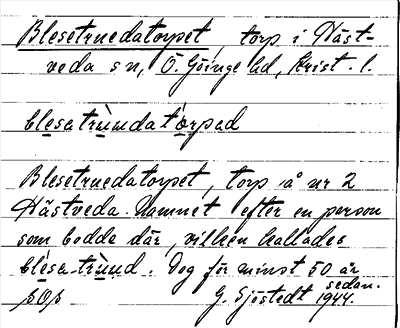 Blesetruedatorpet, torp i Häst-
veda sn, Ö. Göinge hd, Krist. l.
blesatrùndatòrpad
Blesetruedatorpet, torp å nr 2
Hästveda. Namnet efter en person
som bodde där, vilken kallades
blèsa-trùnd. Dog för minst 50 år
sedan.
G. Sjöstedt 1944.